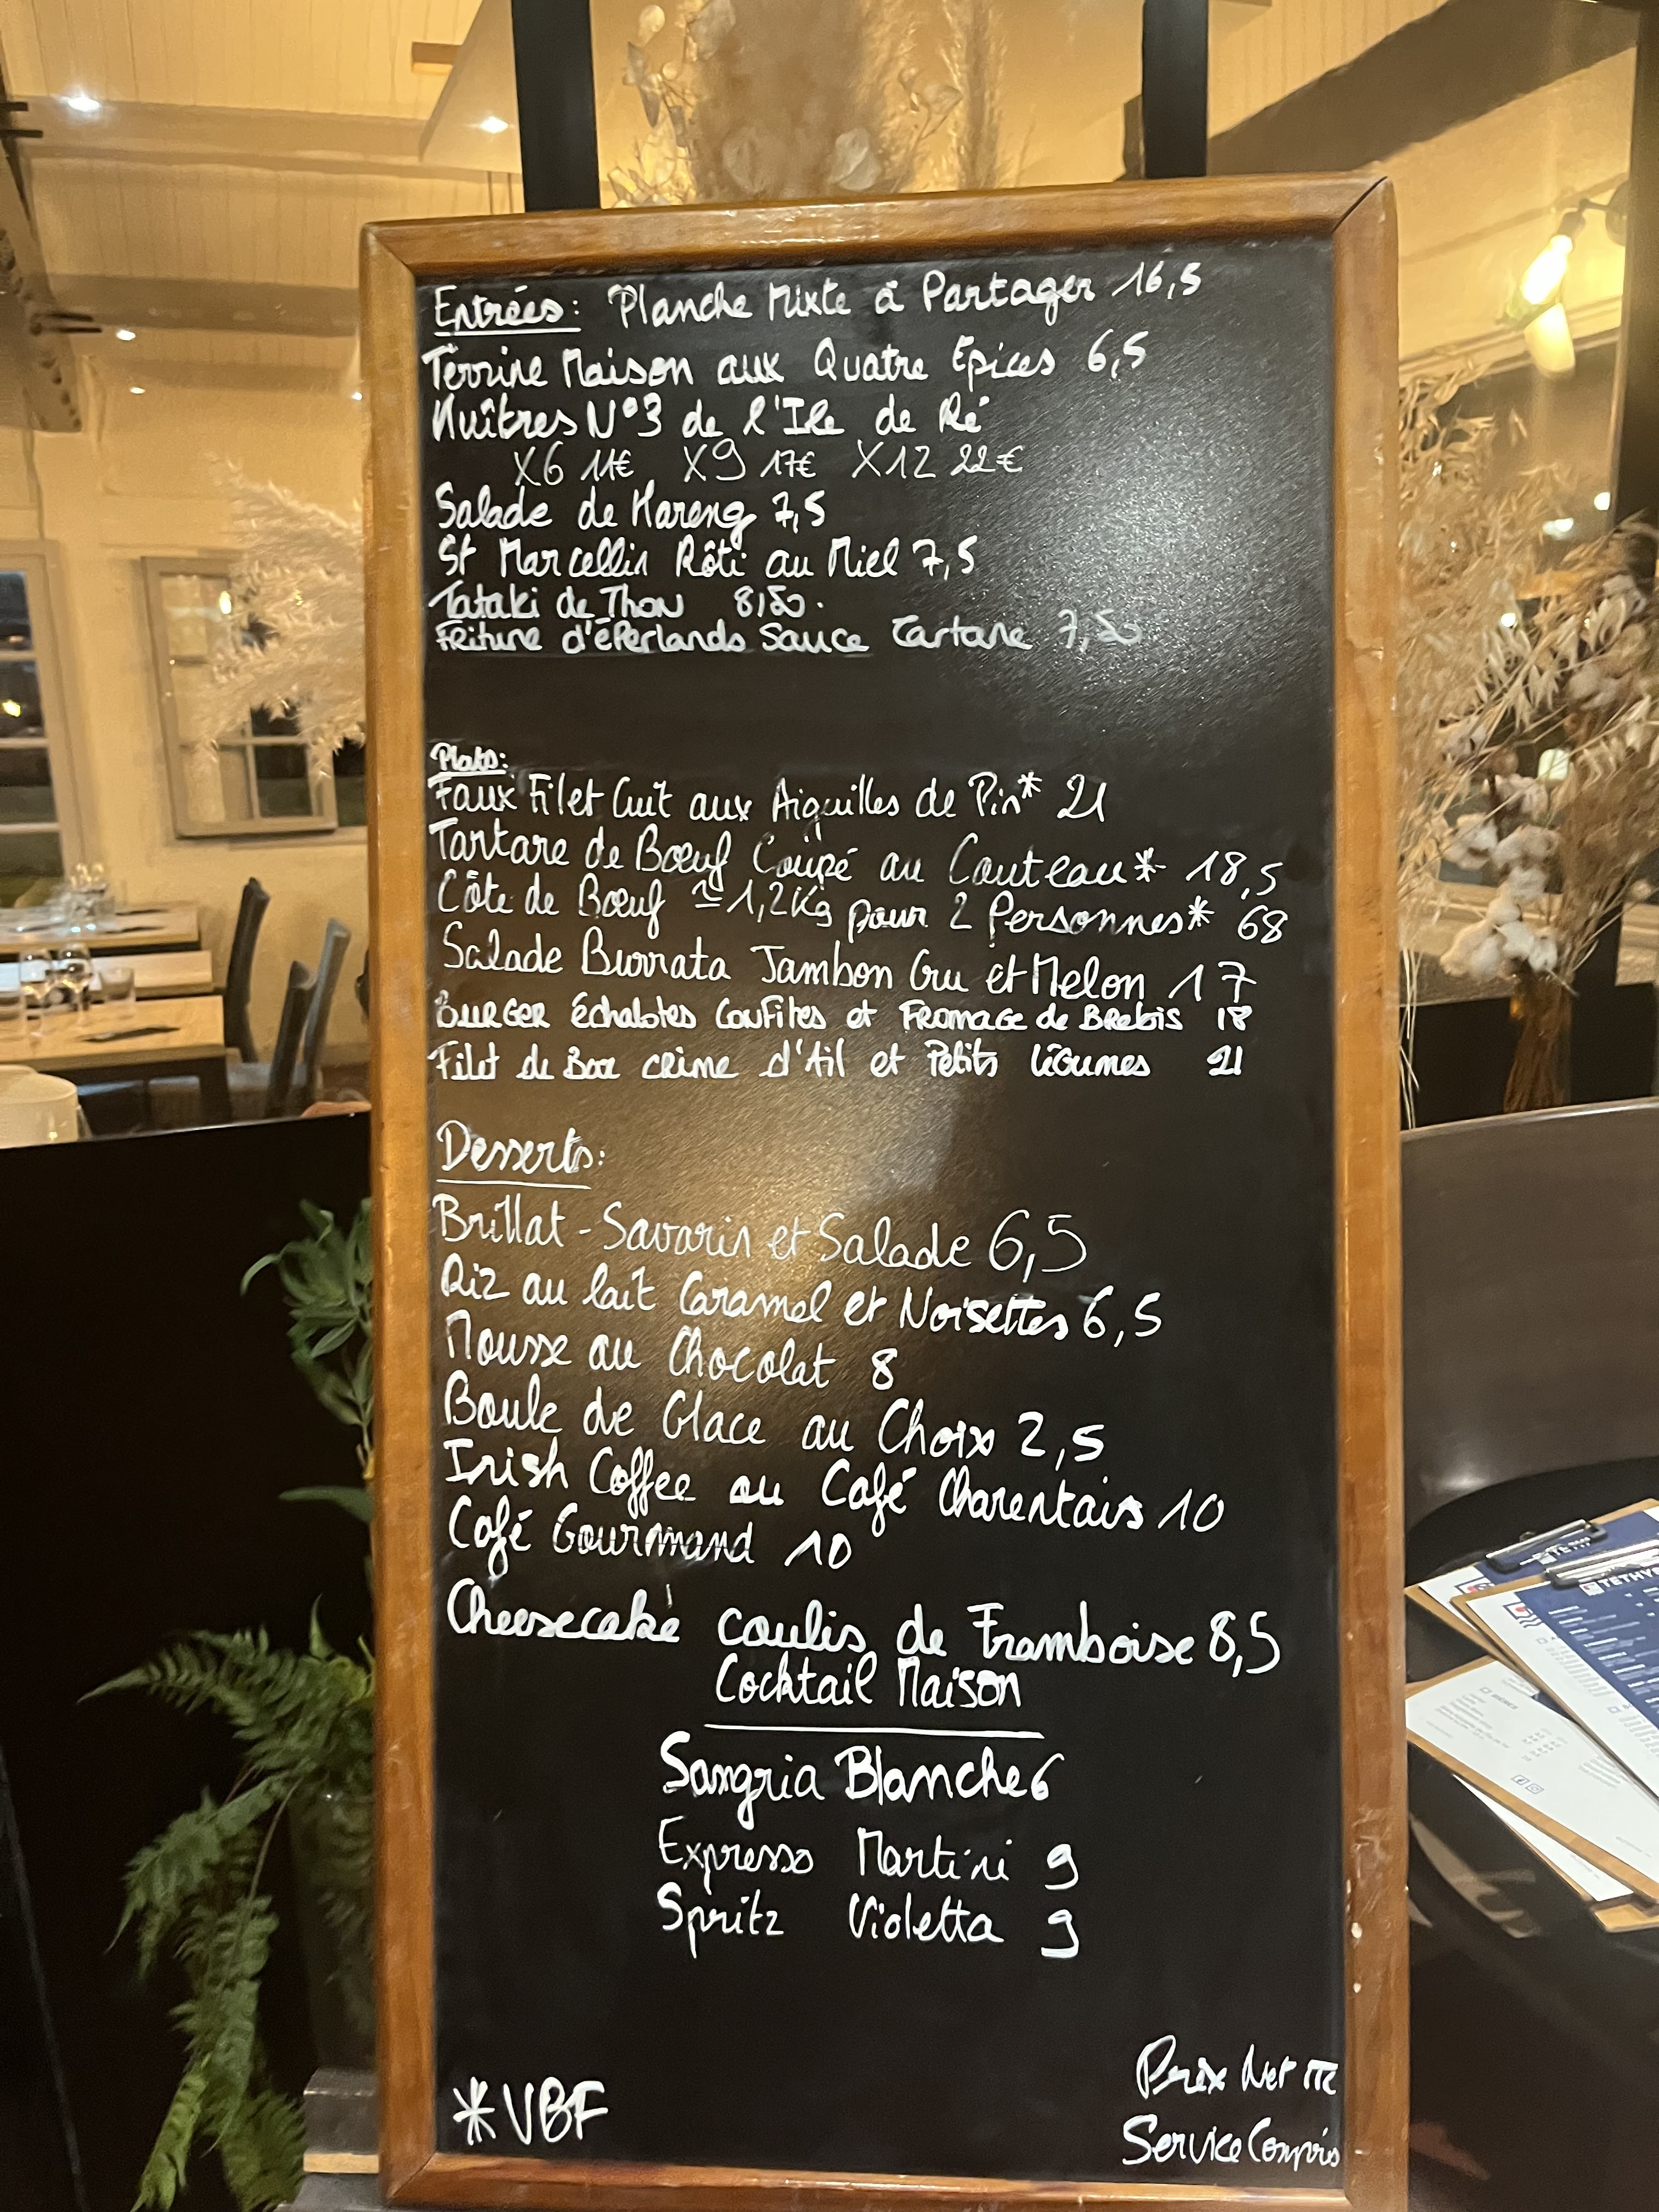 Entrées: Planche Mixte à Partager 16,5
Terrine Maison aux Quatre Epices 6,5
Huîtres N°3 de l'Ile de Ré
X6 11€ X9 17€ X12 22€
Salade de Hareng 7,5
St Marcellin Rôti au Miel 7,5
Tataki de Thon 8,50.
Friture d'éPerlands Sauce Tartare 7,50
Plats:
Faux Filet Cuit aux Aiguilles de Pin* 21
Tartare de Bœuf Coupé au Couteau* 18,5
Côte de Bœuf ≃ 1,2Kg pour 2 Personnes* 68
Salade Burrata Jambon Cru et Melon 17
BURGER Échalotes Confites et FROMAGE de BRebis 18
Filet de Bar crème d'Ail et Petits légumes 21
Desserts:
Brillat-Savarin et Salade 6,5
Riz au lait Caramel et Noisettes 6,5
Mousse au Chocolat 8
Boule de Glace au Choix 2,5
Irish Coffee au Café Charentais 10
Café Gourmand 10
Cheesecake coulis de Framboise 8,5
Cocktail Maison
Sangria Blanche 6
Expresso Martini 9
Spritz Violetta 9
*VBF
Prix Net TTC
Service Compris
TETHYS